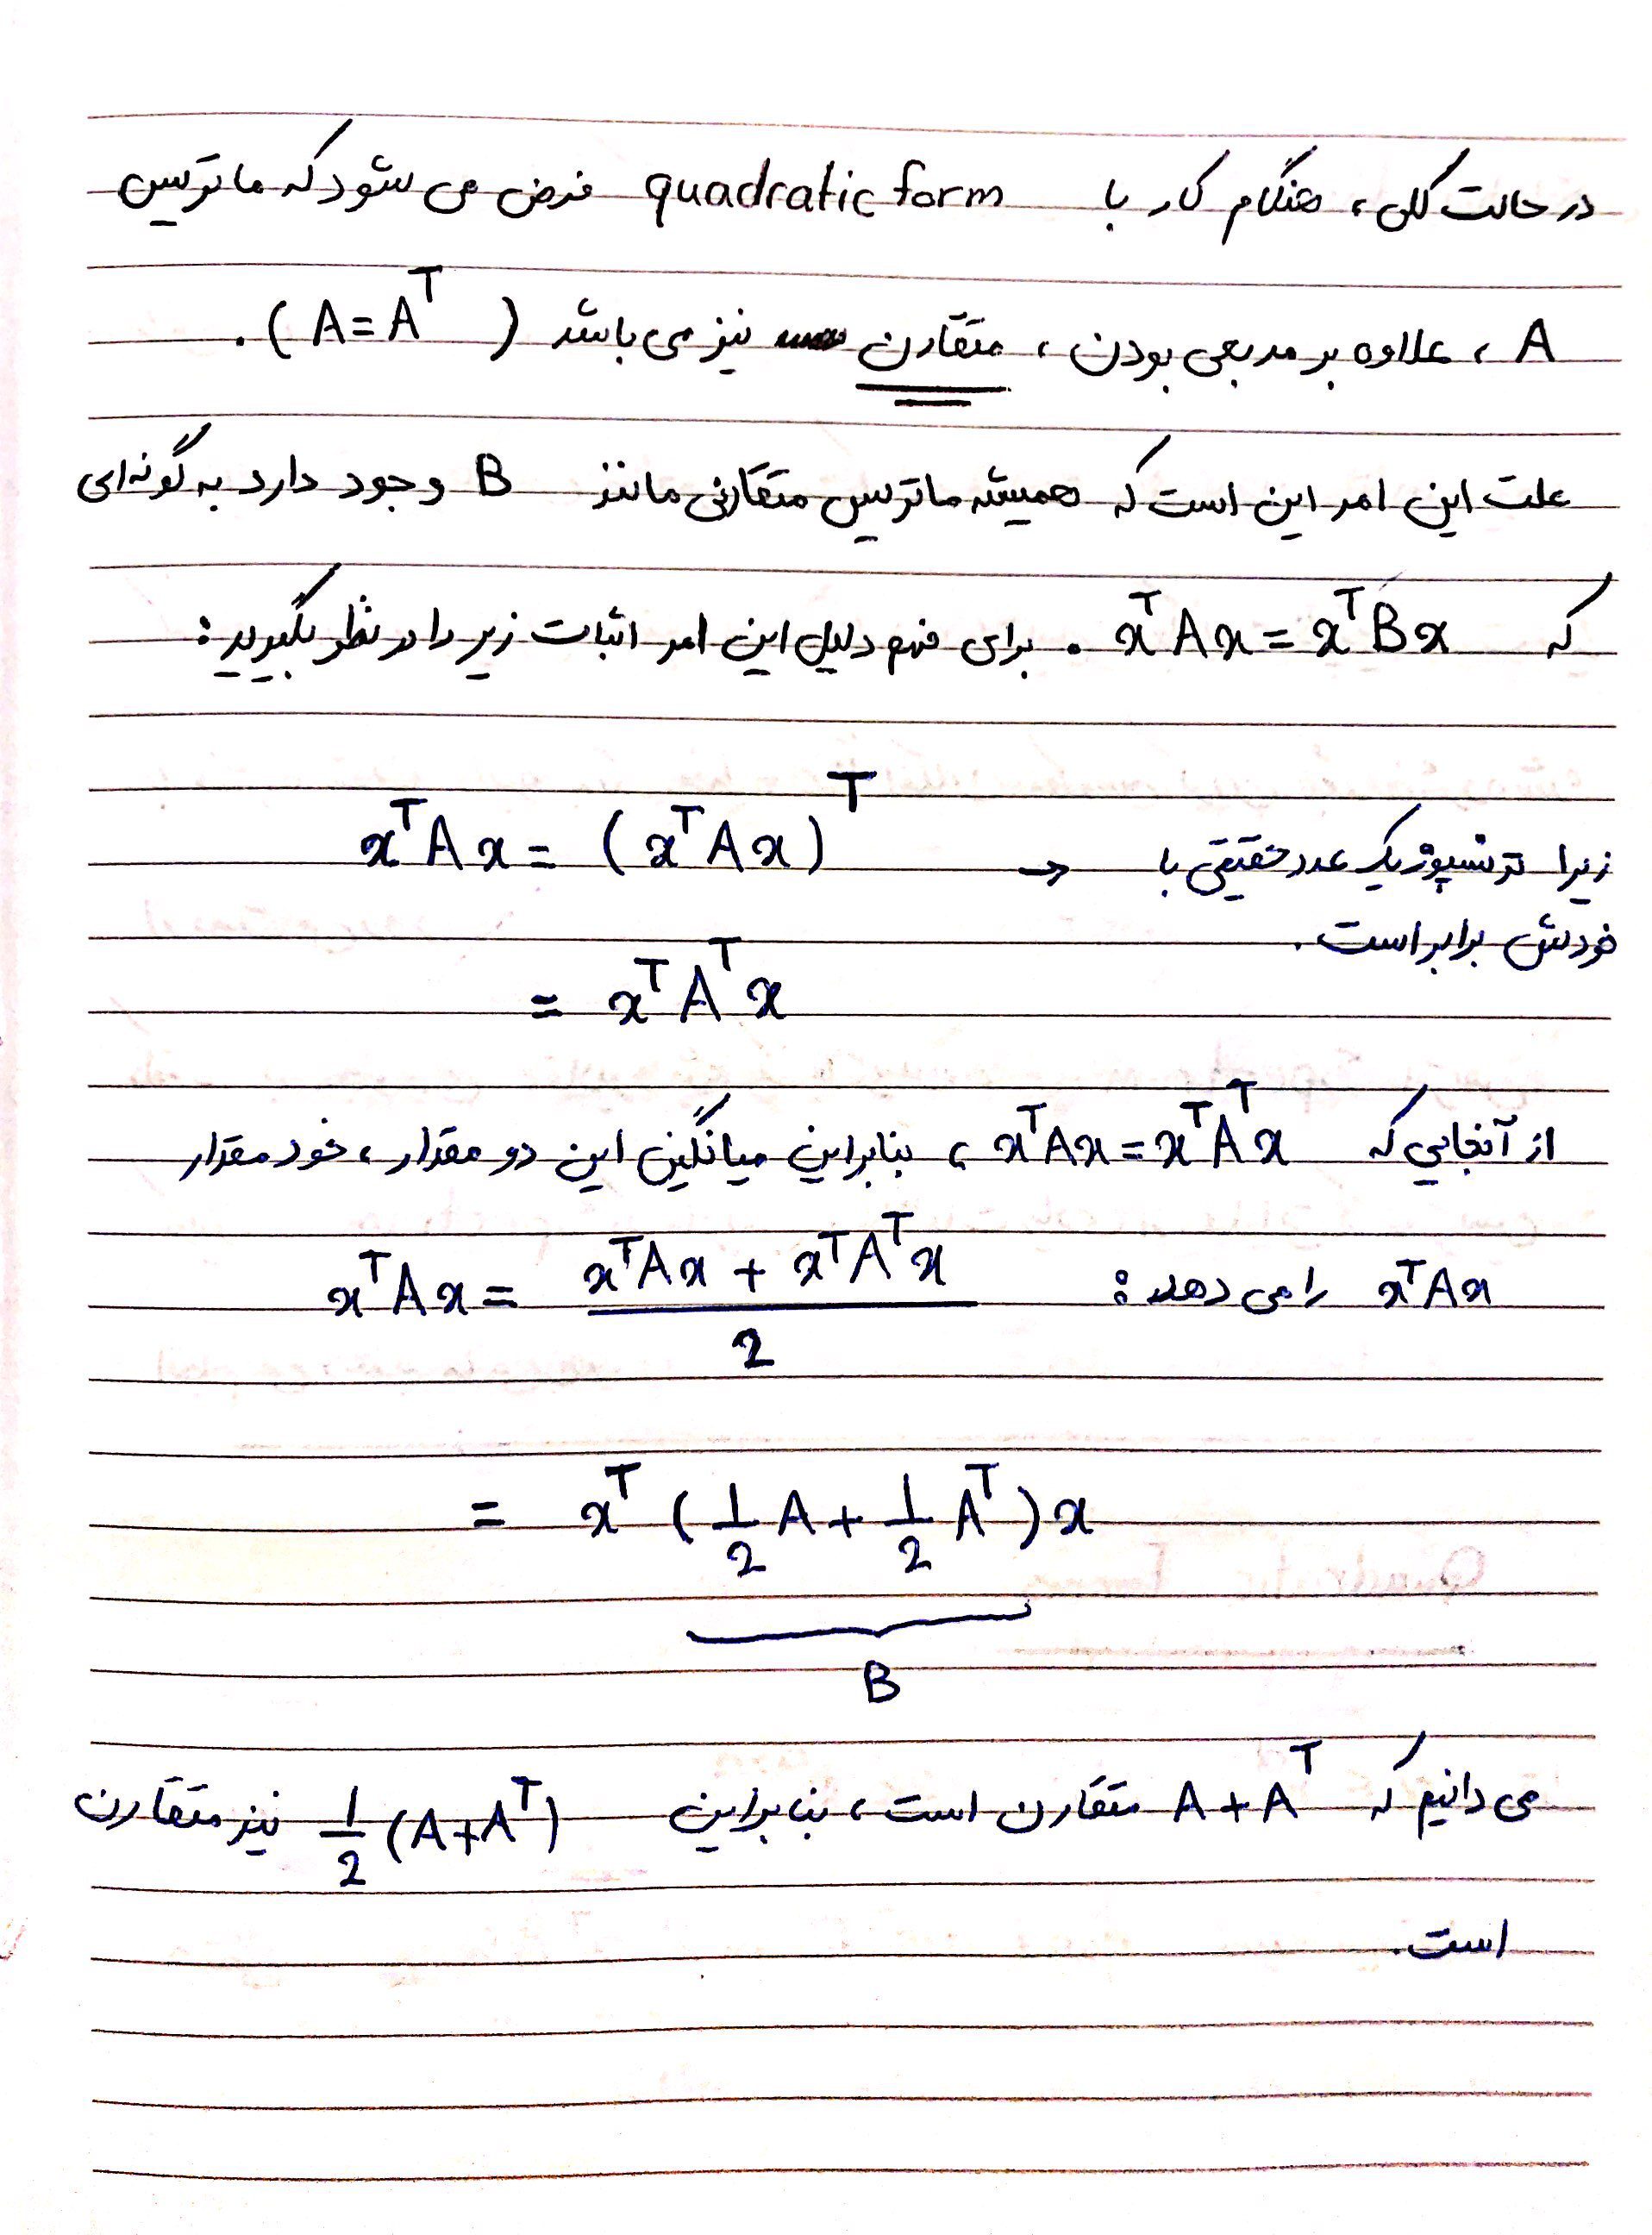 در حالت کلی، هنگام کار با quadratic form فرض می شود که ماتریس
A ، علاوه بر مربعی بودن، متقارن نیز می باشد (A = A^T).
علت این امر این است که همیشه ماتریس متقارنی مانند B وجود دارد به گونه ای
که x^T A x = x^T B x . برای فهم دلیل این امر اثبات زیر را در نظر بگیرید:
x^T A x = (x^T A x)^T → زیرا ترنسپوز یک عدد حقیقی با
خودش برابر است.
= x^T A^T x
از آنجایی که x^T A x = x^T A^T x ، بنابراین میانگین این دو مقدار، خود مقدار
x^T A x را می دهد: x^T A x = (x^T A x + x^T A^T x) / 2
= x^T (1/2 A + 1/2 A^T) x
B
می دانیم که A + A^T متقارن است، بنابراین 1/2 (A + A^T) نیز متقارن
است.